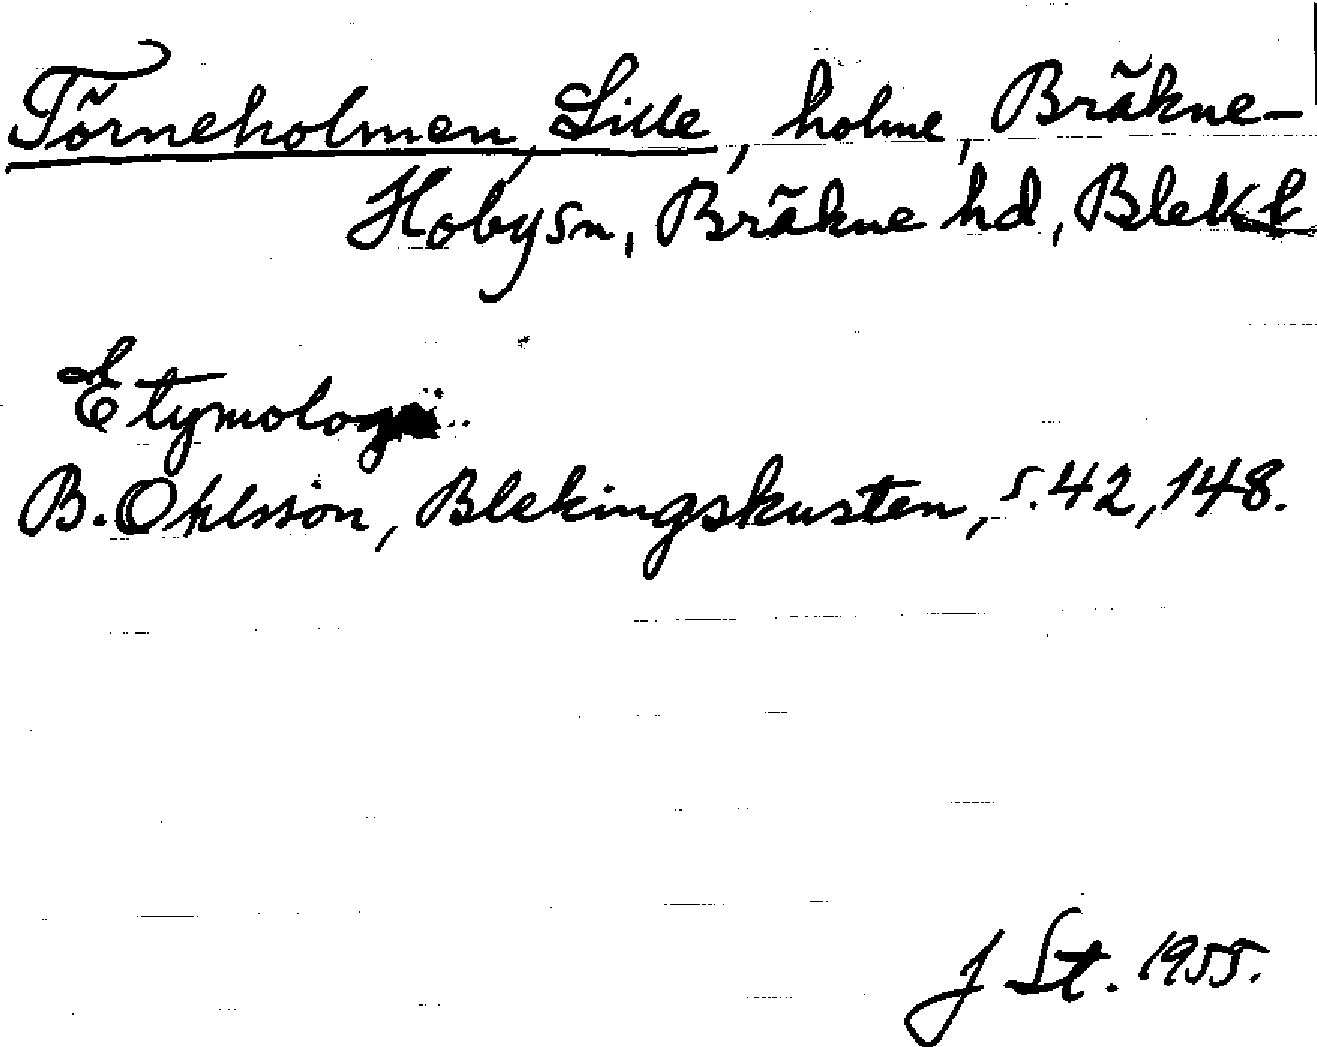 Törneholmen, Lille, holme, Bräkne-
Hoby sn, Bräkne hd, Blek l
Etymologi
B. Ohlsson, Blekingskusten, s. 42, 148.
J St. 1955.